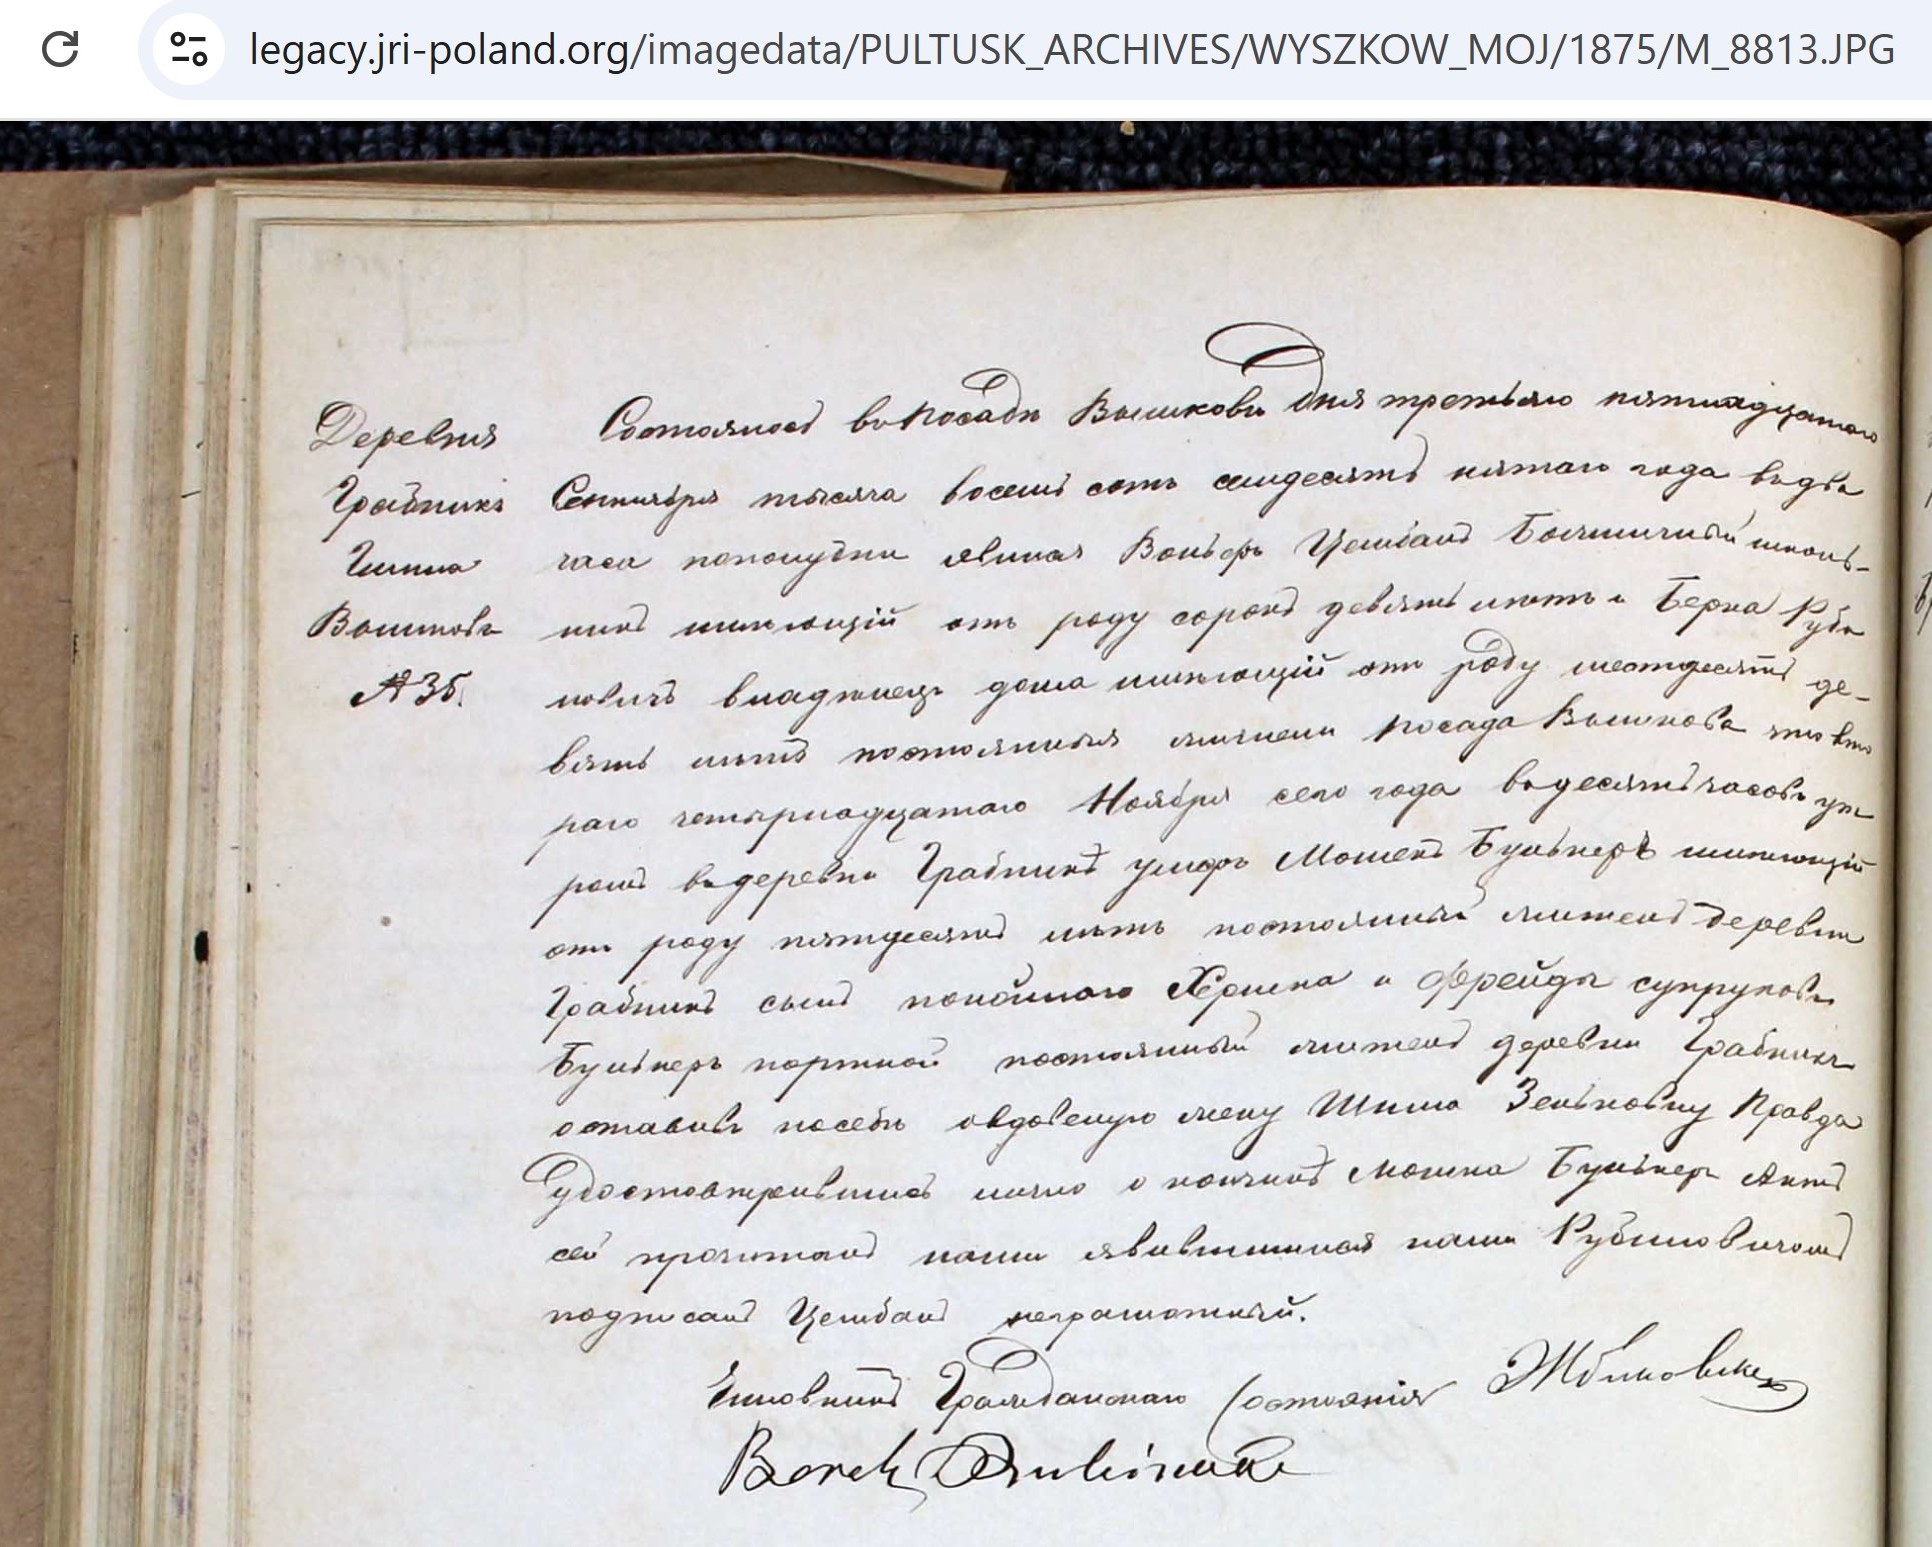 legacy.jri-poland.org/imagedata/PULTUSK_ARCHIVES/WYSZKOW_MOJ/1875/M_8813.JPG
Деревня
Грабникъ
Гмина
№ 35.
Состоялось въ посадѣ Вышковѣ Дня третьяго пятнадцатаго
Сентября тысяча восемь сотъ семдесятъ пятаго года въ два
часа пополудни явился Вольфъ Цембалъ Больничный школь-
никъ имѣющій отъ роду сорокъ девять лѣтъ и Берка Руби
новичъ владѣлецъ дома имѣющій отъ роду шестьдесятъ де-
вять лѣтъ постоянныя жители посада Вышкова что вто
раго четырнадцатаго Ноября сего года въ десять часовъ ут
ромъ въ деревнѣ Грабникѣ умеръ Мошекъ Булькеръ имѣющій
отъ роду пятдесятъ лѣтъ постоянный житель деревни
Грабникъ сынъ покойнаго Хершка и Фрейды супруговъ
Булькеръ портной постоянный житель деревни Грабникъ
оставивъ послѣ овдовѣлую жену Зельковну Правда
Удостовѣрившись лично о кончинѣ Мошка Булькеръ Актъ
сей прочитанъ нами явившимися нами Рубиновичомъ
подписанъ Цембалъ неграмотный.
Чиновникъ Гражданскаго Состоянія
Berek